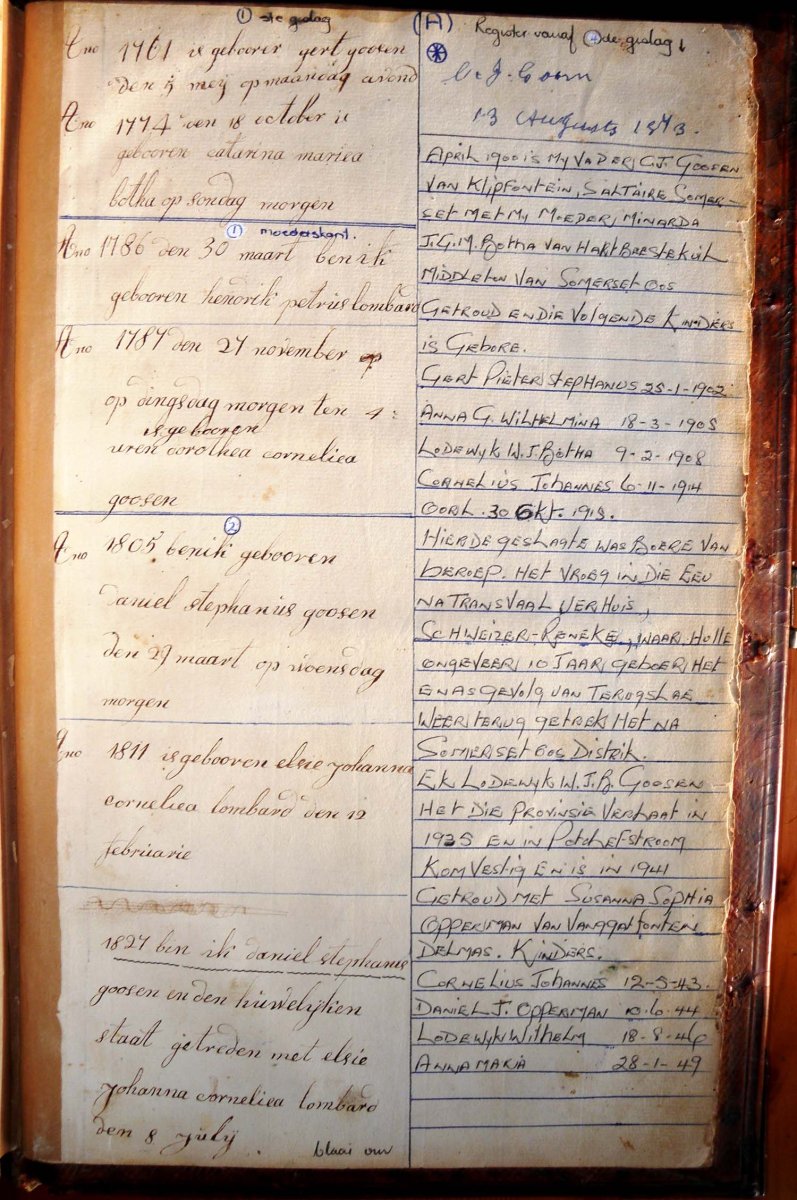 ① 1ste geslag
Ano 1761 is gebooren gert goosen
den 5 meij op maandag avond
Ano 1774 den 18 october is
gebooren catarina mariea
botha op sondag morgen
① moederskant.
Ano 1786 den 30 maart ben ik
gebooren hendrik petrus lombard
Ano 1787 den 27 november
op dingsdag morgen ten 4
is gebooren
uren dorothea corneliea
goosen
②
Ano 1805 ben ik gebooren
daniel stephanus goosen
den 27 maart op woensdag
morgen
Ano 1811 is gebooren elsie johanna
corneliea lombard den 12
februarie
1827 ben ik daniel stephanus
goosen en den huwelijken
staat getreden met elsie
johanna corneliea lombard
den 8 july.
blaai om
(A) Register vanaf ④de geslag ↓
C. J. Goosen
13 Augusts 1873.
APRIL 1900 IS MY VADER, C.J. GOOSEN
VAN KLIPFONTEIN, SALTAIRE SOMER-
SET MET MY MOEDER, MINARDA
J.G.M. BOTHA VAN HARTBEESTEKUIL
MIDDLETON VAN SOMERSET OOS
GETROUD EN DIE VOLGENDE KINDERS
IS GEBORE.
GERT PIETER STEPHANUS 25-1-1902
ANNA G. WILHELMINA 18-3-1905
LODEWYK W.J. BOTHA 9-2-1908
CORNELIUS JOHANNES 6-11-1914
OORL. 30 OKT. 1918.
HIERDE GESLAGTE WAS BOERE VAN
BEROEP. HET VROEG IN DIE EEU
NA TRANSVAAL VERHUIS,
SCHWEIZER-RENEKE, WAAR HULLE
ONGEVEER 10 JAAR GEBOER HET
EN AS GEVOLG VAN TERUGSLAE
WEER TERUG GETREK HET NA
SOMERSET OOS DISTRIK.
EK LODEWYK W.J.B. GOOSEN
HET DIE PROVINSIE VERLAAT IN
1935 EN IN POTCHEFSTROOM
KOM VESTIG EN IS IN 1941
GETROUD MET SUSANNA SOPHIA
OPPERMAN VAN VANGGATFONTEIN
DELMAS. KINDERS.
CORNELIUS JOHANNES 12-5-43.
DANIEL J. OPPERMAN 10.6.44
LODEWYK WILHELM 18-8-46
ANNA MARIA 28-1-49